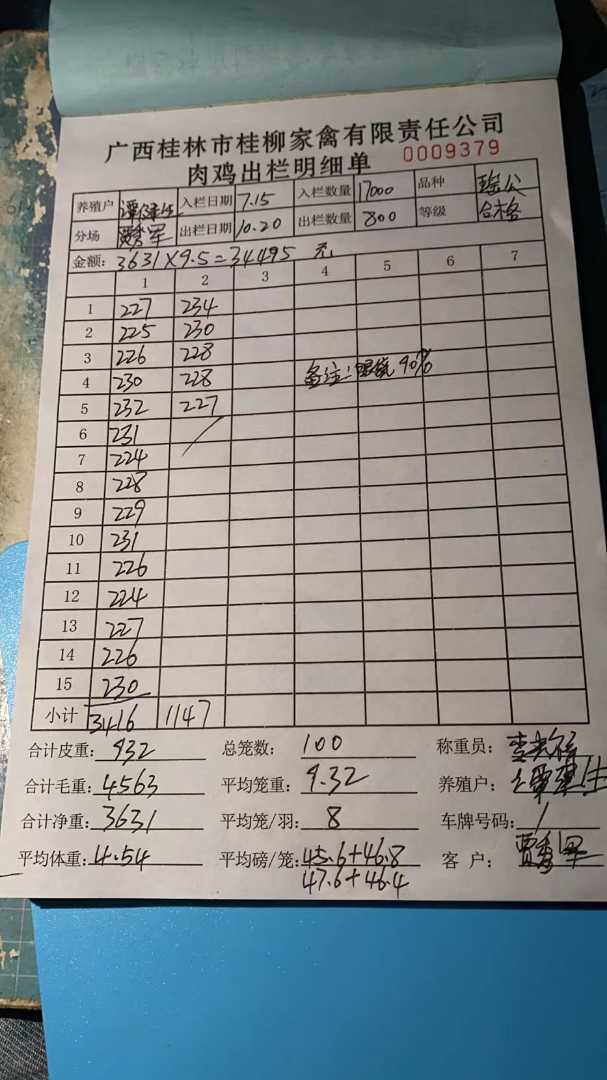 广西桂林市桂柳家禽有限责任公司
肉鸡出栏明细单 0009379
养殖户 入栏日期 7.15 入栏数量 17000 品种 瑶公
分场 出栏日期 10.20 出栏数量 800 等级 合格
金额: 3631×9.5=34495 元
1 2 3 4 5 6 7
1 227 234
2 225 230
3 226 228
4 230 228 备注: 90%
5 232 227
6 231
7 224
8 228
9 229
10 231
11 226
12 224
13 227
14 226
15 230
小计 3416 1147
合计皮重: 932 总笼数: 100 称重员:
合计毛重: 4563 平均笼重: 9.32 养殖户:
合计净重: 3631 平均笼/羽: 8 车牌号码: /
平均体重: 4.54 平均磅/笼: 45.6+46.8 客 户:
47.6+46.4